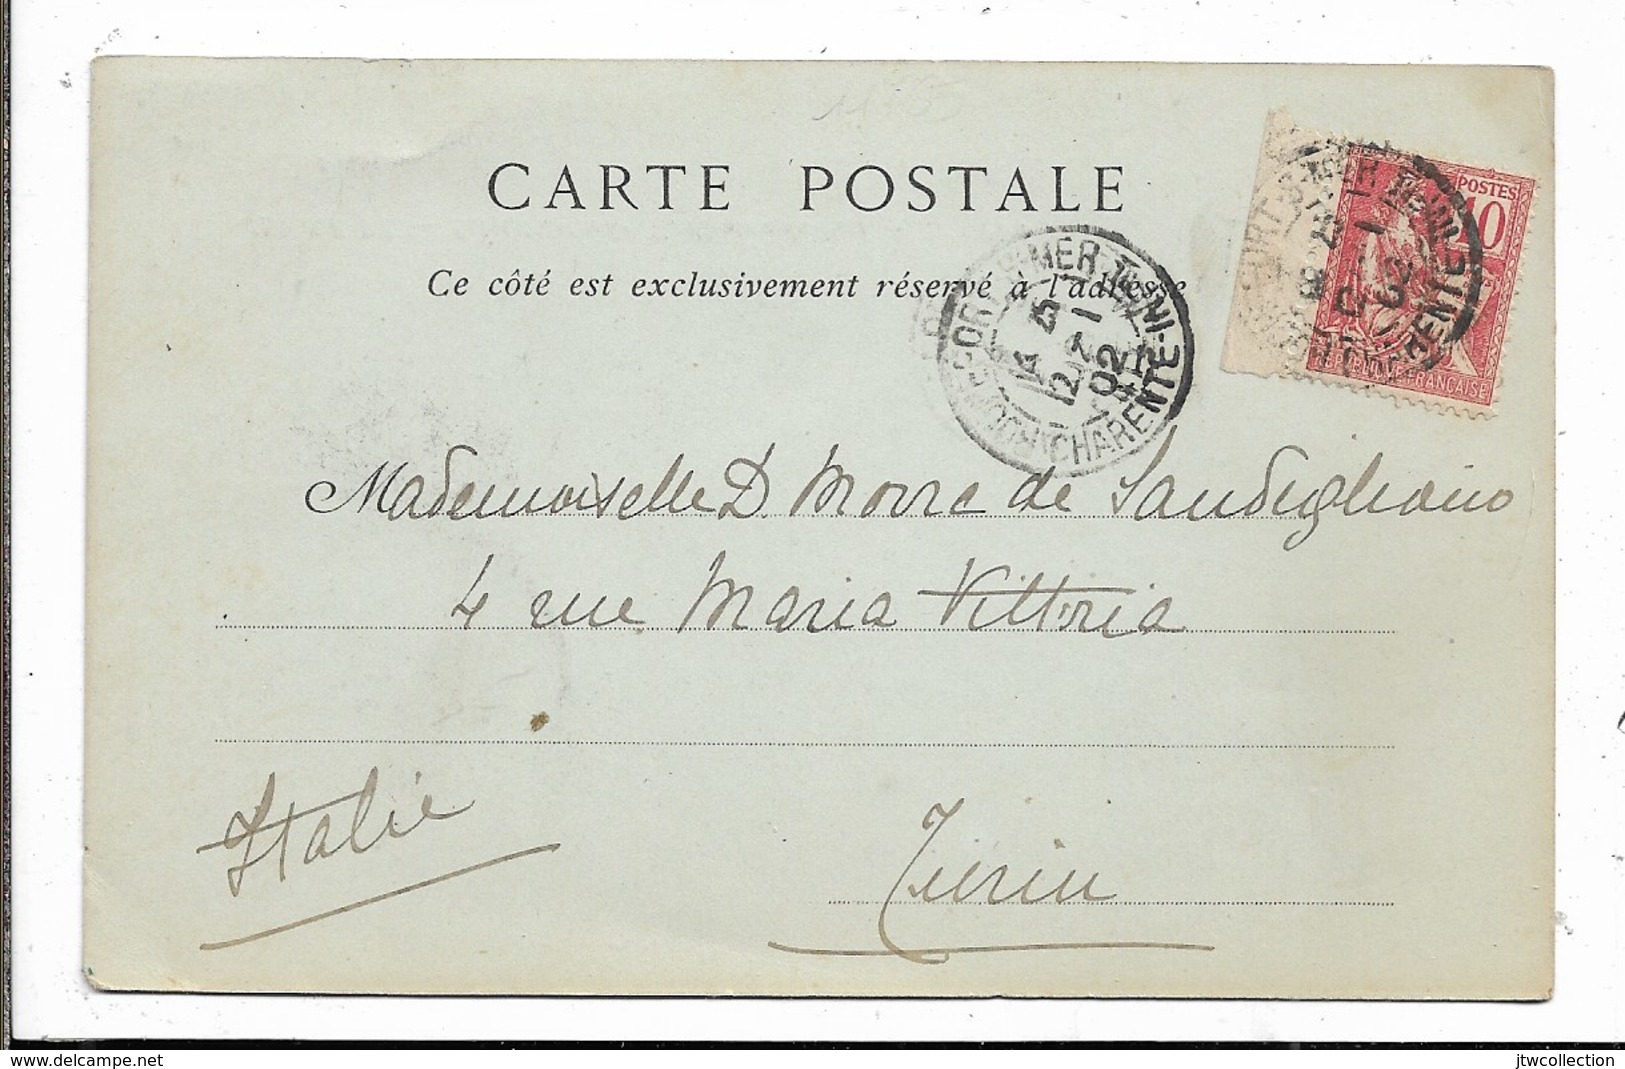 CARTE POSTALE
Ce côté est exclusivement réservé à l'adresse
POSTES
10
RÉPUBLIQUE FRANÇAISE
CHARENTE-INF
02
Mademoiselle D. Morra de Sandigliano
4 rue Maria Vittoria
Italie
Turin
www.delcampe.net
jtwcollection